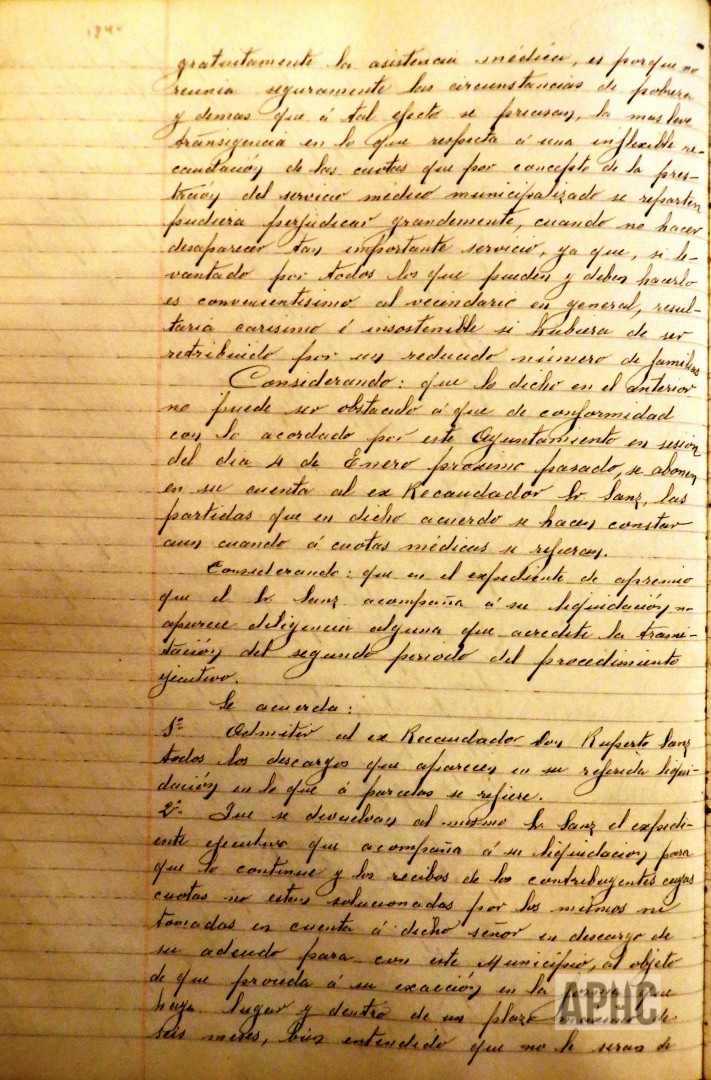 gratuitamente la asistencia médica, es porque no
reunia seguramente las circunstancias de pobreza
y demas que á tal efecto se precisan, la mas leve
transigencia en lo que respecta á una inflexible re-
caudación de las cuotas que por concepto de la pres-
tación del servicio médico municipalizado se reparten
pudiera perjudicar grandemente, cuando no hacer
desaparecer tan importante servicio, ya que, si le-
vantado por todos los que pueden y deben hacerlo
es convenientisimo al vecindario en general, resul-
taria carisimo é insostenible si hubiera de ser
retribuido por un reducido número de familias
Considerando: que lo dicho en el anterior
no puede ser obstaculo á que de conformidad
con lo acordado por este Ayuntamiento en sesión
del dia 4 de Enero proximo pasado, se abonen
en su cuenta al ex Recaudador Sr Sanz, las
partidas que en dicho acuerdo se hacen constar
aun cuando á cuotas médicas se refieran.
Considerando: que en el expediente de apremio
que el Sr Sanz acompaña á su liquidación, no
aparece diligencia alguna que acredite la trami-
tación del segundo periodo del procedimiento
ejecutivo.
Se acuerda:
1º Admitir al ex Recaudador Don Ruperto Sanz
todos los descargos que aparecen en su referida liqui-
dación en lo que á parcelas se refiere.
2º Que se devuelvan al mismo Sr Sanz el expedi-
ente ejecutivo que acompaña á su liquidacion, para
que lo continue y los recibos de los contribuyentes cuyas
cuotas no esten solucionadas por los mismos ni
tomadas en cuenta á dicho señor en descargo de
su adeudo para con este Municipio, al objeto
de que proceda á su exacción, en la que
haya lugar y dentro de un plazo de
seis meses, bien entendido que no le seran de
APHC